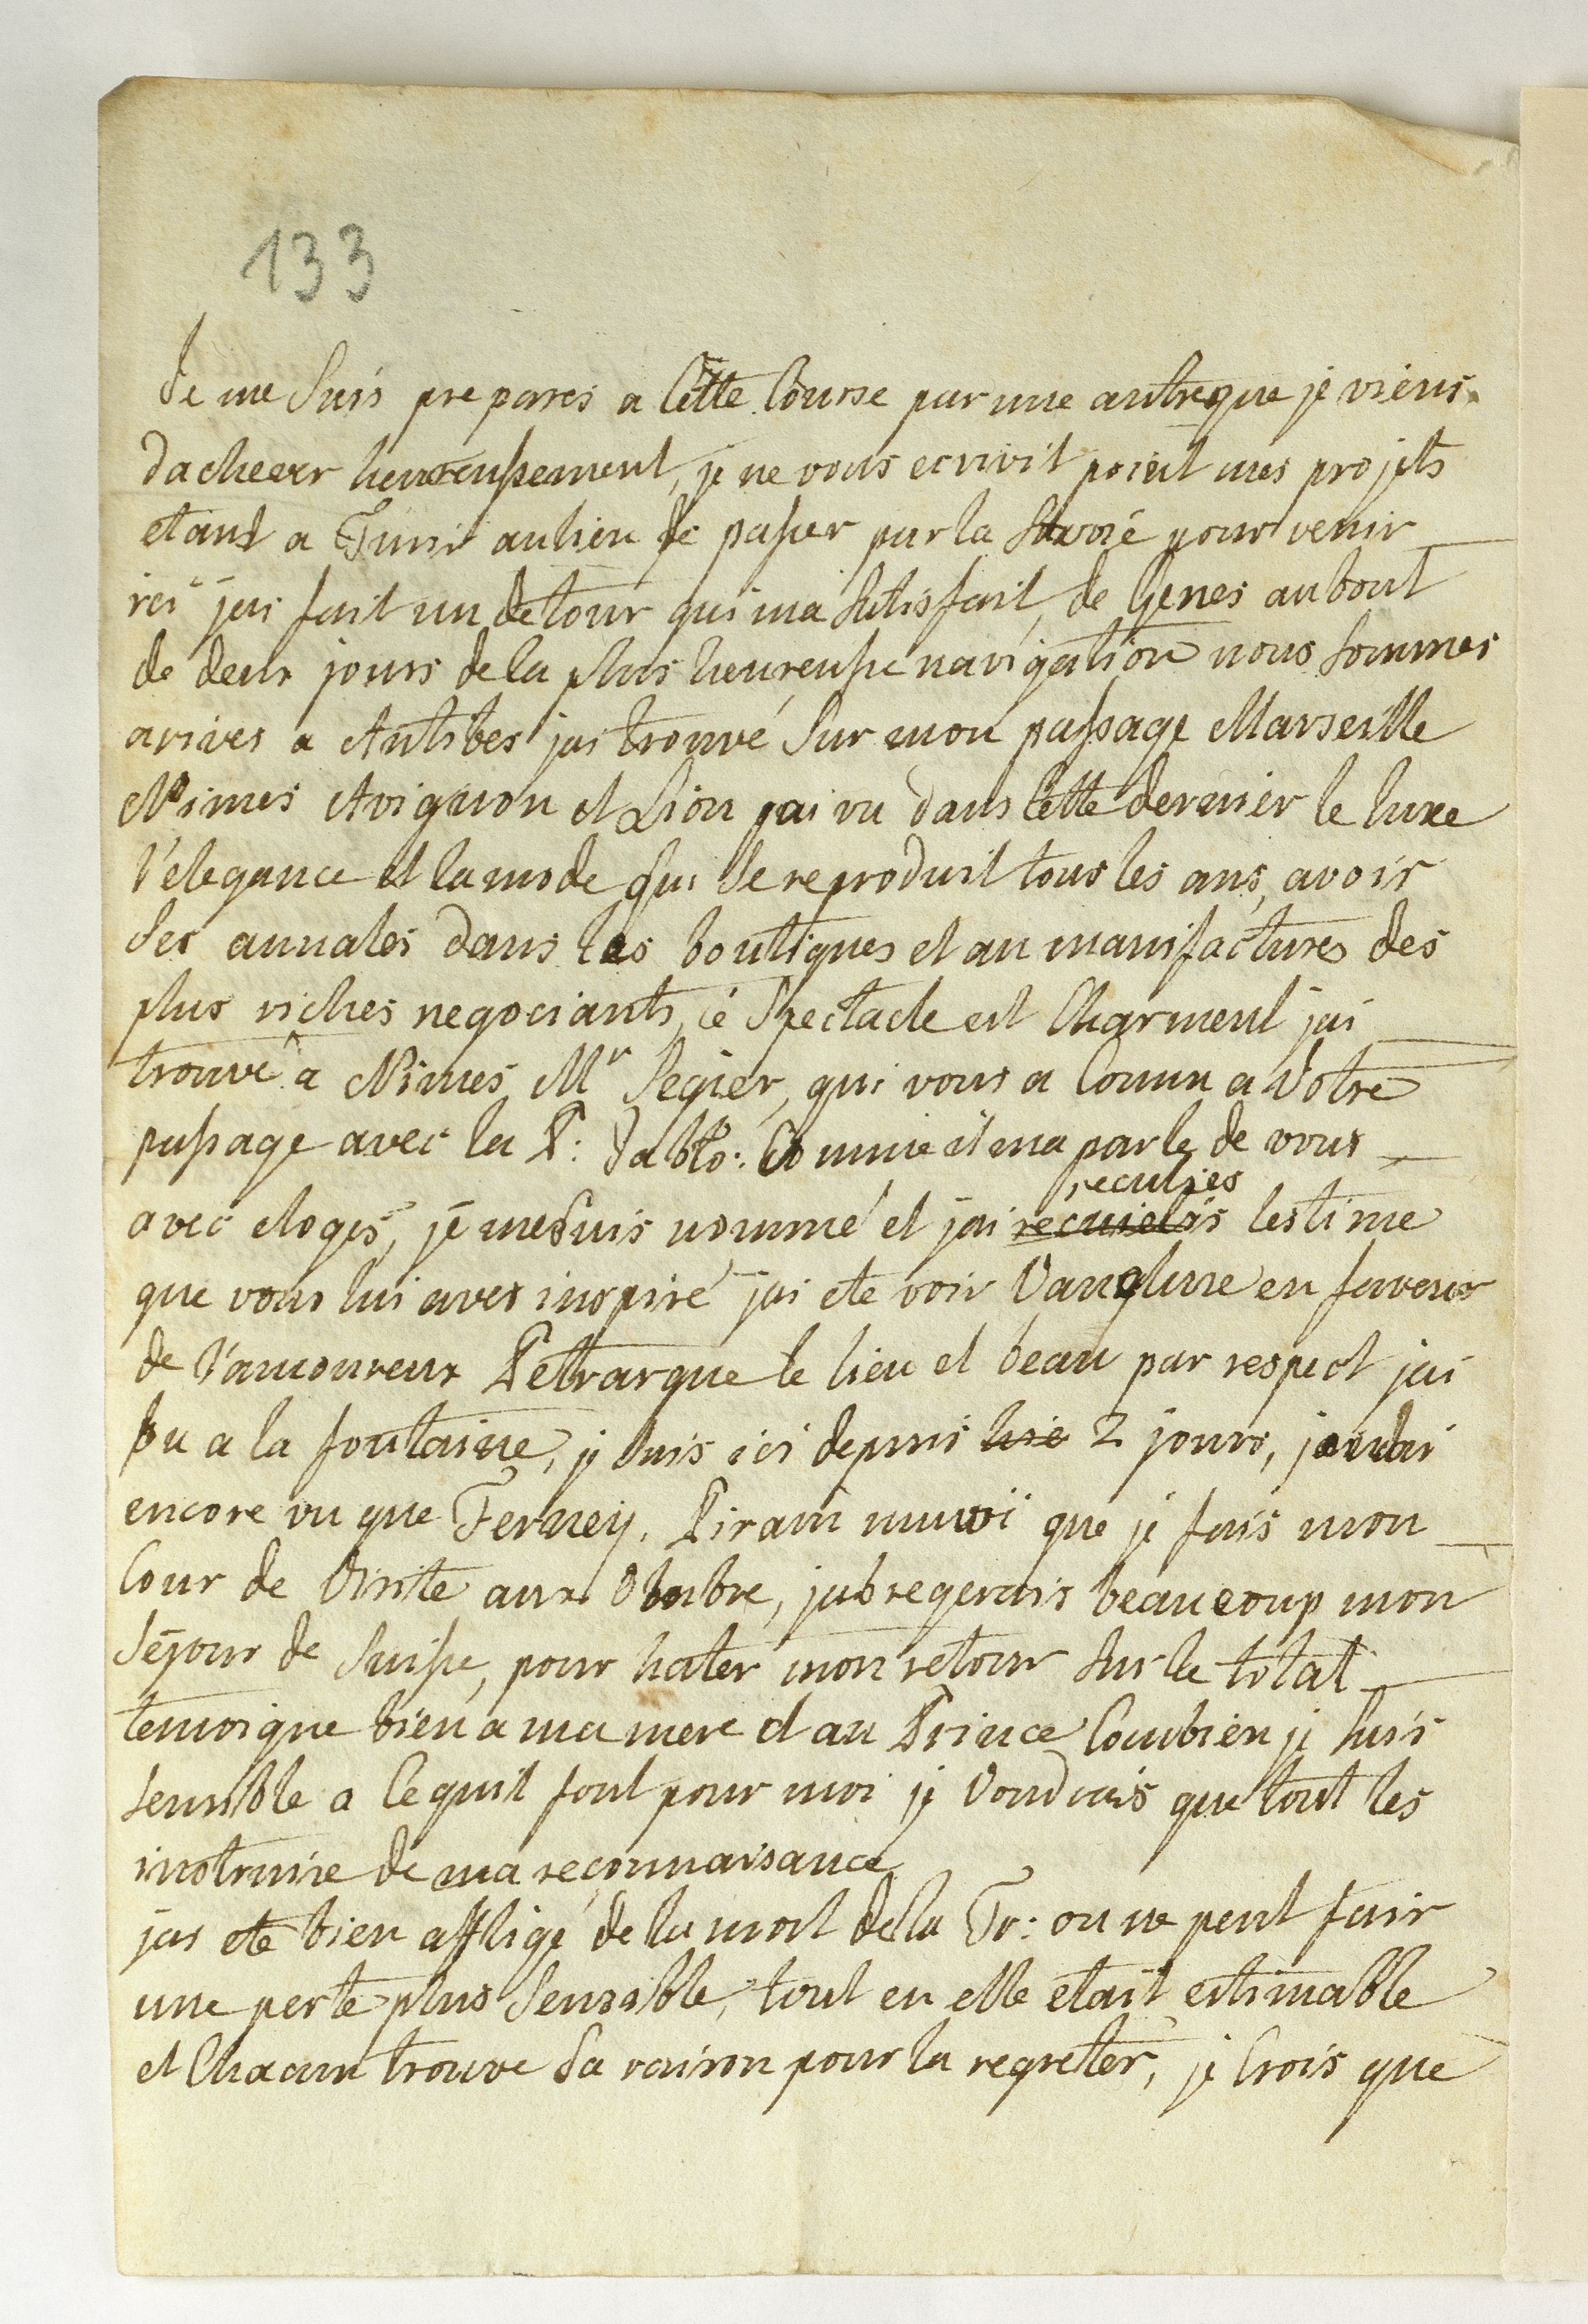 133
Je me suis prepares a Cette Course par une autre que je viens
dachever heureusement, je ne vous ecrivit point mes projets
etant a Turin aulieu de passer par la Savoié pour venir
ici jai fait un detour qui ma satisfait, de Genes au bout
de deux jours de la plus heureuse navigation nous sommes
arives a Antibes jai trouvé sur mon passage Marseille
Nimes Avignon et Lion jai vu dans cette dernier le luxe
l'elegance et la mode qui se reproduit tous les ans, avoir
ses annales dans les boutiques et au manifactures des
plus riches negociants, cé Spectacle est Charment jai
trouvé a Nimes Mr Segier, qui vous a Connu a votre
passage avec la P: Jabło: Comme il ma parle de vous
avec eloges, je me suis nommé et jai reculies lestime
que vous lui aves inspiré jai ete voir Vaugluse en faveur
de l'amoureux Petrarque le lieu et beau par respect jai
bu a la fontaine, je suis ici depuis 2 jours,
encore vu que Ferney. que je fais mon
Cour de Visite aux Ombre, jabregerais beaucoup mon
Séjour de Suisse, pour hater mon retour sur le total
temoigne bien a ma mere et au Prince Combien je suis
sensible a Cequil font pour moi je Voudrais que tout les
instruire de ma reconnaisance
jai ete bien affligé de la mort de la Tr: on ne peut fair
une perte plus Sensible, tout en elle etait estimable
et Chacun trouve sa raison pour la regreter, je Crois que